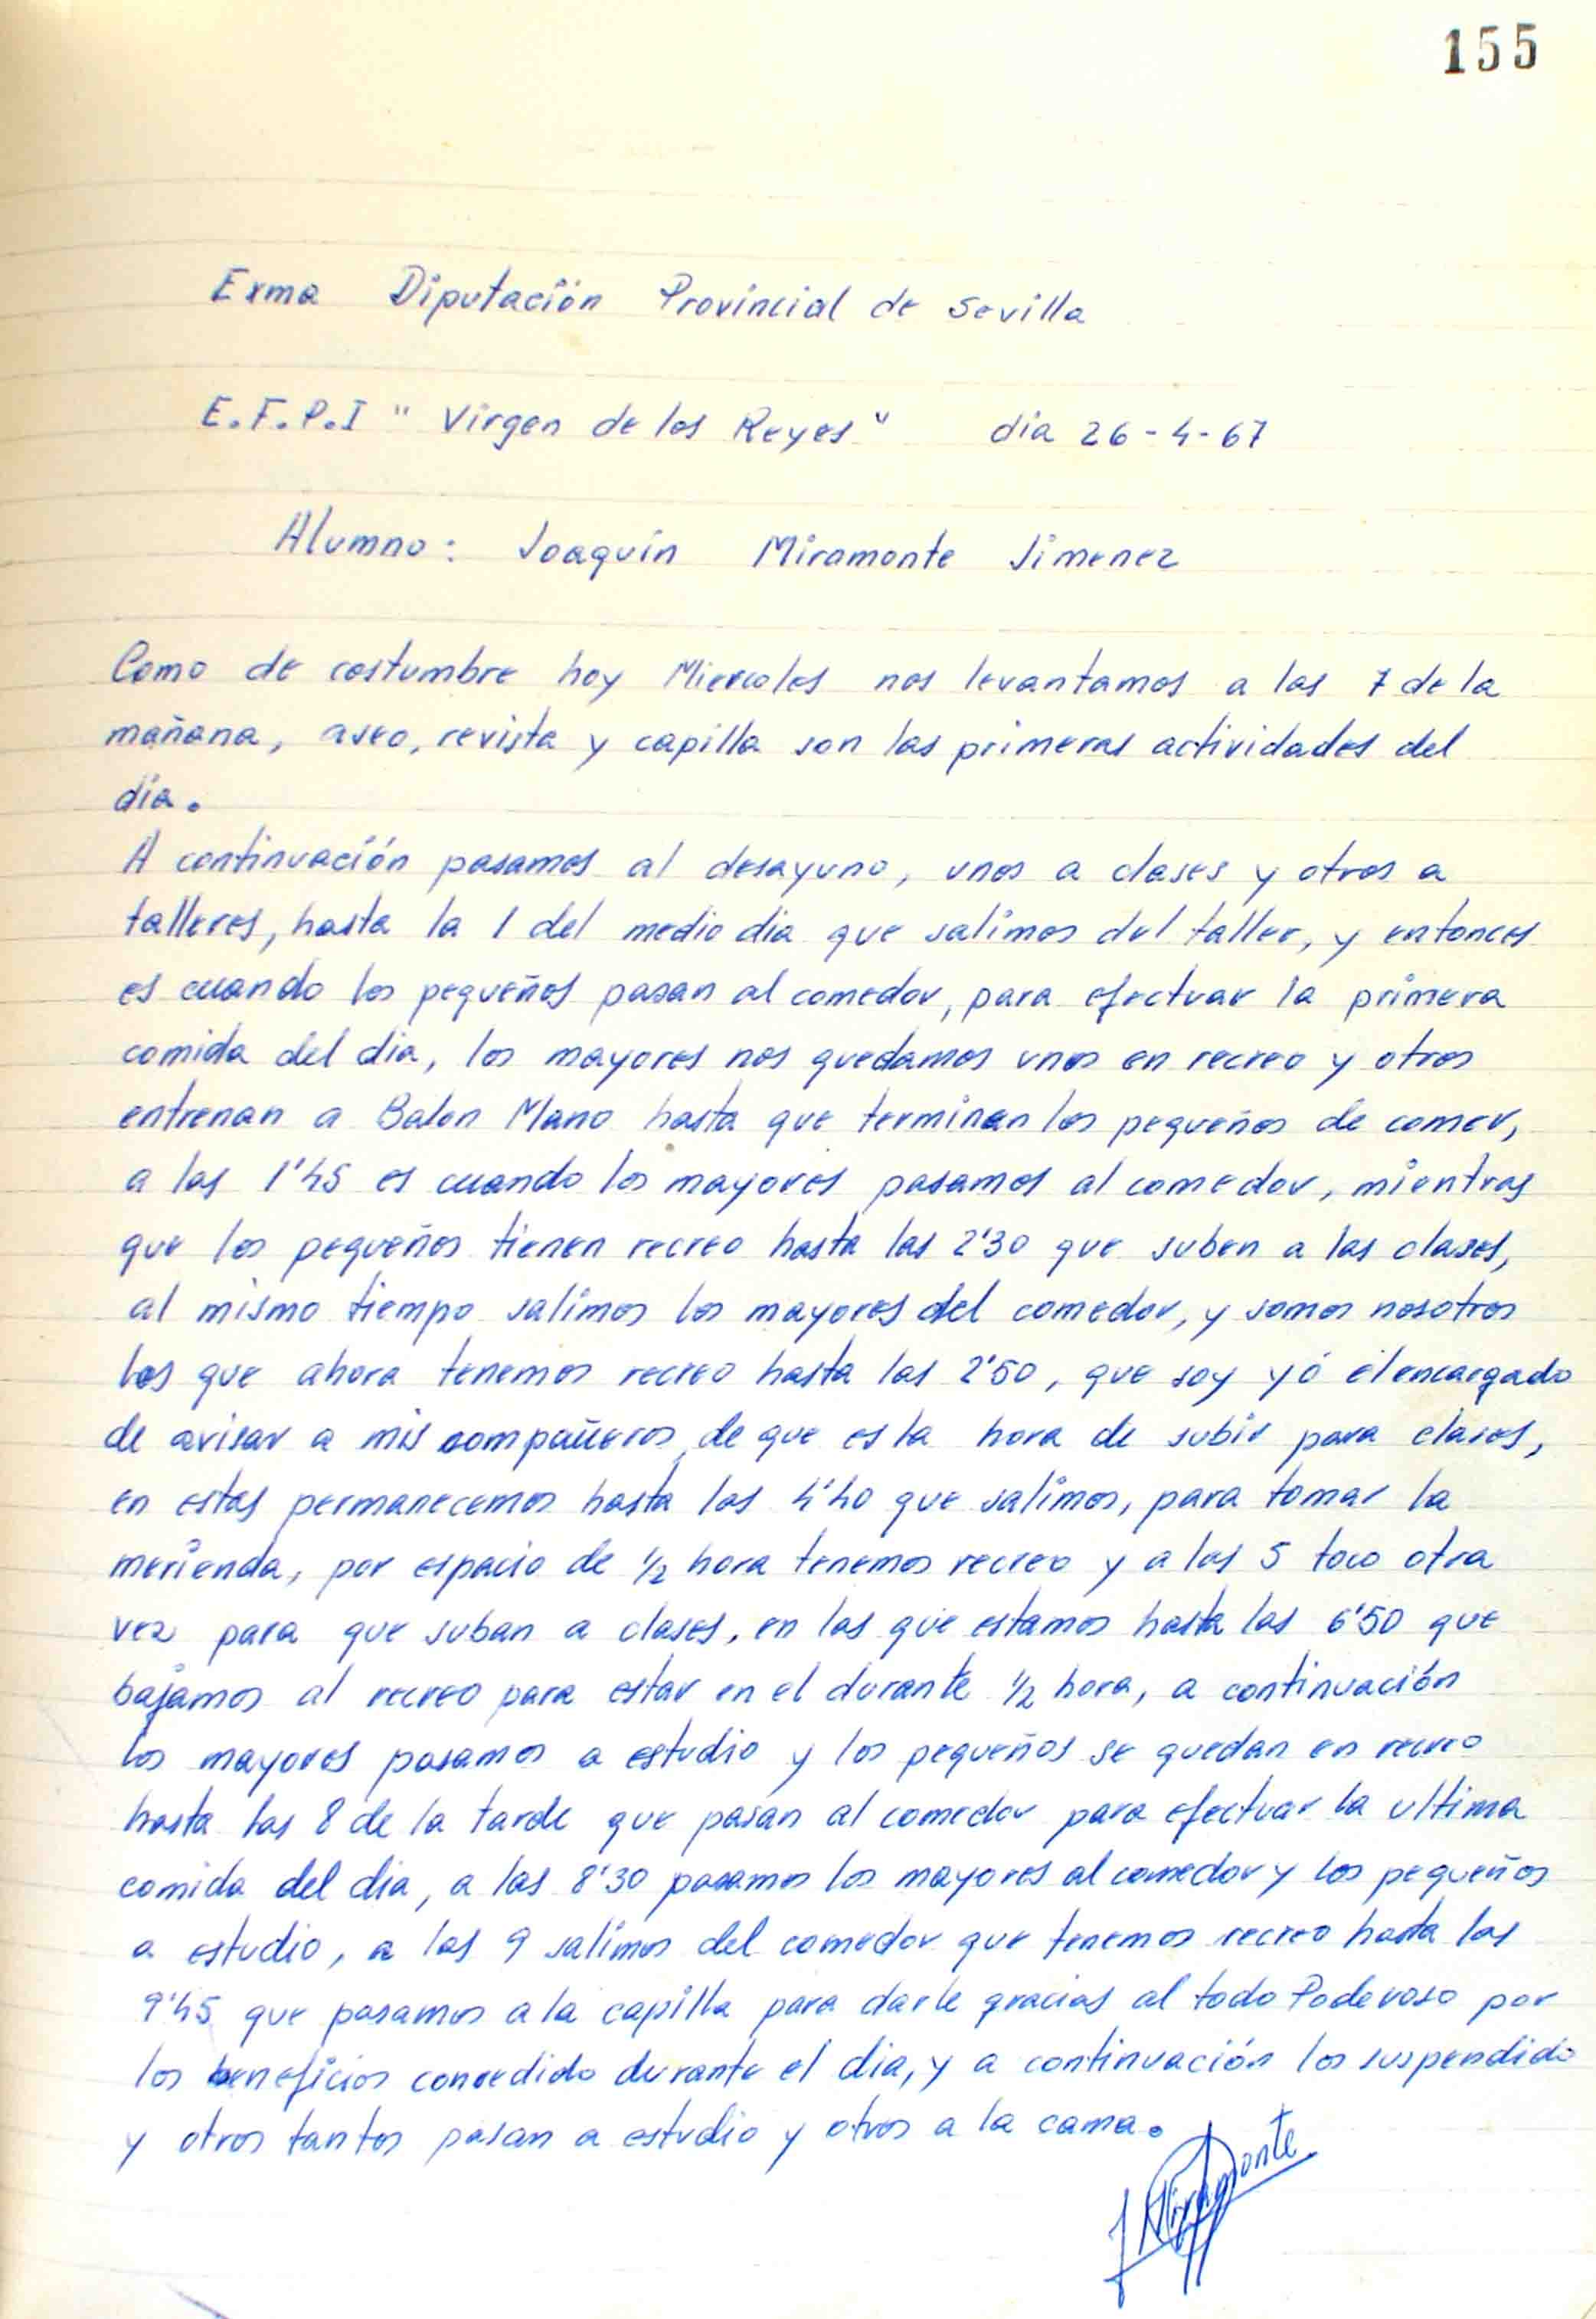 155
Exma Diputación Provincial de Sevilla
E.F.P.I " Virgen de los Reyes " dia 26-4-67
Alumno: Joaquín Miramonte Jimenez
Como de costumbre hoy Miercoles nos levantamos a las 7 de la
mañana, aseo, revista y capilla son las primeras actividades del
día.
A continuación pasamos al desayuno, unos a clases y otros a
talleres, hasta la 1 del medio dia que salimos del taller, y entonces
es cuando los pequeños pasan al comedor, para efectuar la primera
comida del dia, los mayores nos quedamos unos en recreo y otros
entrenan a Balon Mano hasta que terminan los pequeños de comer,
a las 1'45 es cuando los mayores pasamos al comedor, mientras
que los pequeños tienen recreo hasta las 2'30 que suben a las clases,
al mismo tiempo salimos los mayores del comedor, y somos nosotros
los que ahora tenemos recreo hasta las 2'50, que soy yó el encargado
de avisar a mis compañeros, de que es la hora de subir para clases,
en estas permanecemos hasta las 4'40 que salimos, para tomar la
merienda, por espacio de 1/2 hora tenemos recreo y a las 5 toco otra
vez para que suban a clases, en las que estamos hasta las 6'50 que
bajamos al recreo para estar en el durante 1/2 hora, a continuación
los mayores pasamos a estudio y los pequeños se quedan en recreo
hasta las 8 de la tarde que pasan al comedor para efectuar la ultima
comida del dia, a las 8'30 pasamos los mayores al comedor y los pequeños
a estudio, a las 9 salimos del comedor que tenemos recreo hasta las
9'45 que pasamos a la capilla para darle gracias al todo Poderoso por
los beneficios concedido durante el dia, y a continuación los suspendido
y otros tantos pasan a estudio y otros a la cama.
J Miramonte